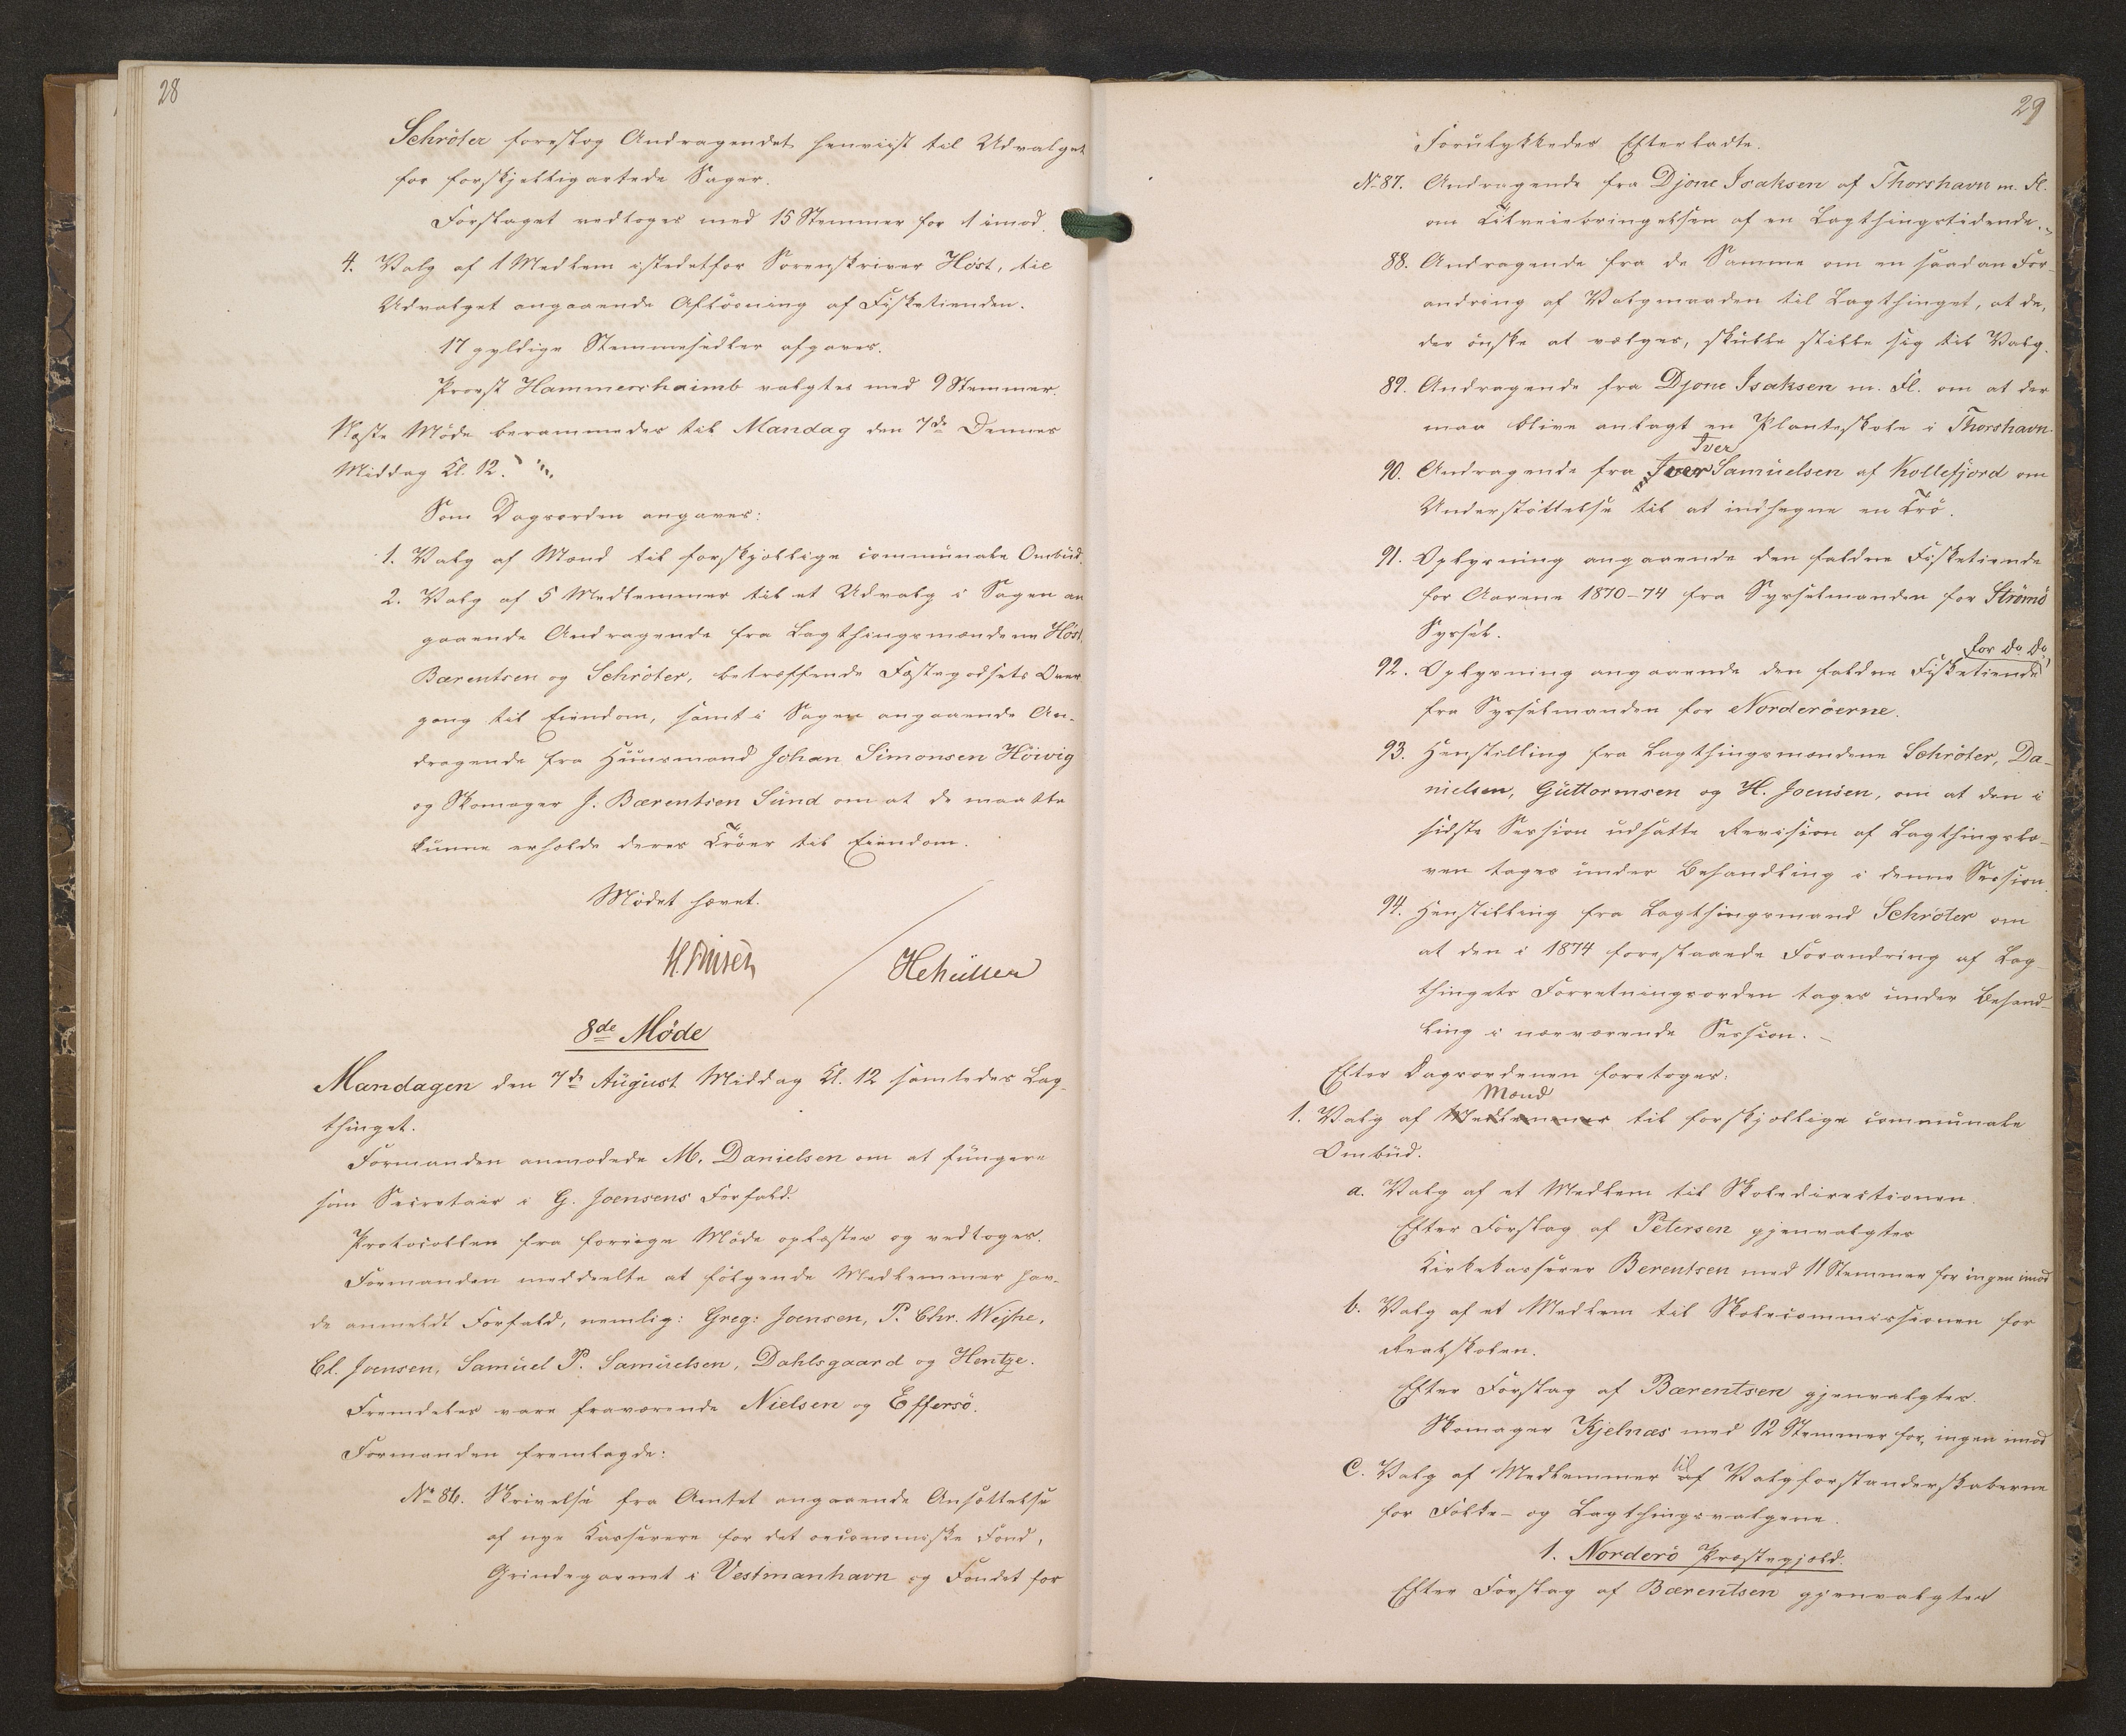 28
Schröter foreslog Andragendet henviist til Udvalget
for forskjelligartede Sager.
Forslaget vedtoges med 15 Stemmer for 1 imod.
4. Valg af 1 Medlem istedetfor Sorenskriver Höst, til
Udvalget angaaende Aflösning af Fisketienden.
17 gyldige Stemmesedler afgaves.
Provst Hammershaimb valgtes med 9 Stemmer.
Næste Möde berammedes til Mandag den 7de Dennes
Middag Kl. 12.
Som Dagsorden angaves:
1. Valg af Mænd til forskjellige communale Ombud.
2. Valg af 5 Medlemmer til et Udvalg i Sagen an
gaaende Andragende fra Lagthingsmændene Höst,
Bærentsen og Schröter, betræffende Fæstegodsets Over
gang til Eiendom, samt i Sagen angaaende An-
dragende fra Huusmand Johan Simonsen Höivig
og Skomager J. Bærentsen Sund om at de maatte
kunne erholde deres Tröer til Eiendom.
Mödet hævet.
H. Finsen HCMüller
8de Möde
Mandagen den 7de August Middag Kl. 12 samledes Lag-
thinget.
Formanden anmodede M. Danielsen om at fungere
som Secretair i G. Joensens Forfald.
Protocollen fra forrige Möde oplæstes og vedtoges.
Formanden meddeelte at fölgende Medlemmer hav-
de anmeldt Forfald, nemlig: Greg: Joensen, P. Chr. Weihe,
Cl. Joensen, Samuel P. Samuelsen, Dahlsgaard og Hentze.
Fremdeles vare fraværende Nielsen og Effersö.
Formanden fremlagde:
No 86. Skrivelse fra Amtet angaaende Ansættelse
af nye Kasserere for det oeconomiske Fond,
Grindegarnet i Vestmanhavn og Fondet for
29
Forulykkedes Efterladte.
No 87. Andragende fra Djone Isaksen af Thorshavn m. Fl.
om Tilveiebringelsen af en Lagthingstidende.
88. Andragende fra de Samme om en saadan For-
andring af Valgmaaden til Lagthinget, at de,
der önske at vælges, skulle stille sig til Valg.
89. Andragende fra Djone Isaksen m. Fl. om at der
maa blive anlagt en Planteskole i Thorshavn.
Iver
90. Andragende fra Iver Samuelsen af Kollefjord om
Understöttelse til at indhegne en Trö.
91. Oplysning angaaende den faldne Fisketiende
for Aarene 1870-74 fra Sysselmanden for Strömö
Syssel.
for do do,
92. Oplysning angaaende den faldne Fisketiende
fra Sysselmanden for Norderöerne.
93. Henstilling fra Lagthingsmændene Schröter, Da-
nielsen, Guttormsen og H. Joensen, om at den i
sidste Session udsatte Revision af Lagthingslo-
ven tages under Behandling i denne Session.
94. Henstilling fra Lagthingsmand Schröter om
at den i 1874 foreslaaede Forandring af Lag-
thingets Forretningsorden tages under Behand-
ling i nærværende Session.
Efter Dagsordenen foretoges:
Mænd
1. Valg af Medlemmer til forskjellige communale
Ombud.
a. Valg af et Medlem til Skoledirectionen.
Efter Forslag af Petersen gjenvalgtes
Kirkekasserer Berentsen med 11 Stemmer for ingen imod
b. Valg af et Medlem til Skolecommissionen for
Realskolen.
Efter Forslag af Bærentsen gjenvalgtes.
Skomager Kjelnæs med 12 Stemmer for, ingen imod
til
C. Valg af Medlemmer af Valgforstanderskaberne
for Folke- og Lagthingsvalgene.
1. Norderö Præstegjeld.
Efter Forslag af Bærentsen gjenvalgtes